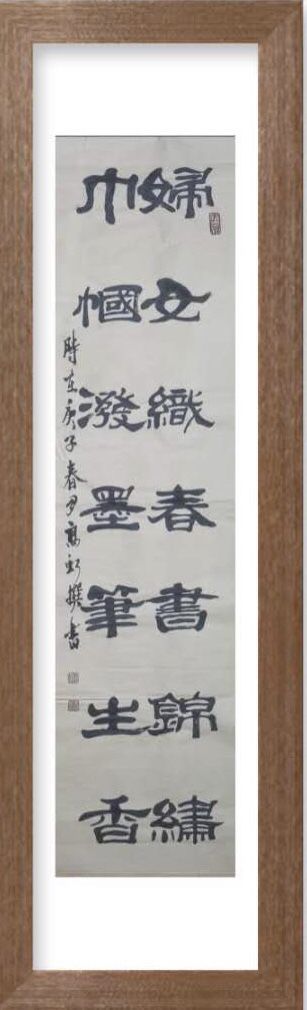 婦女織春書錦繡
巾幗潑墨筆生香
時在庚子春尹高虹撰書